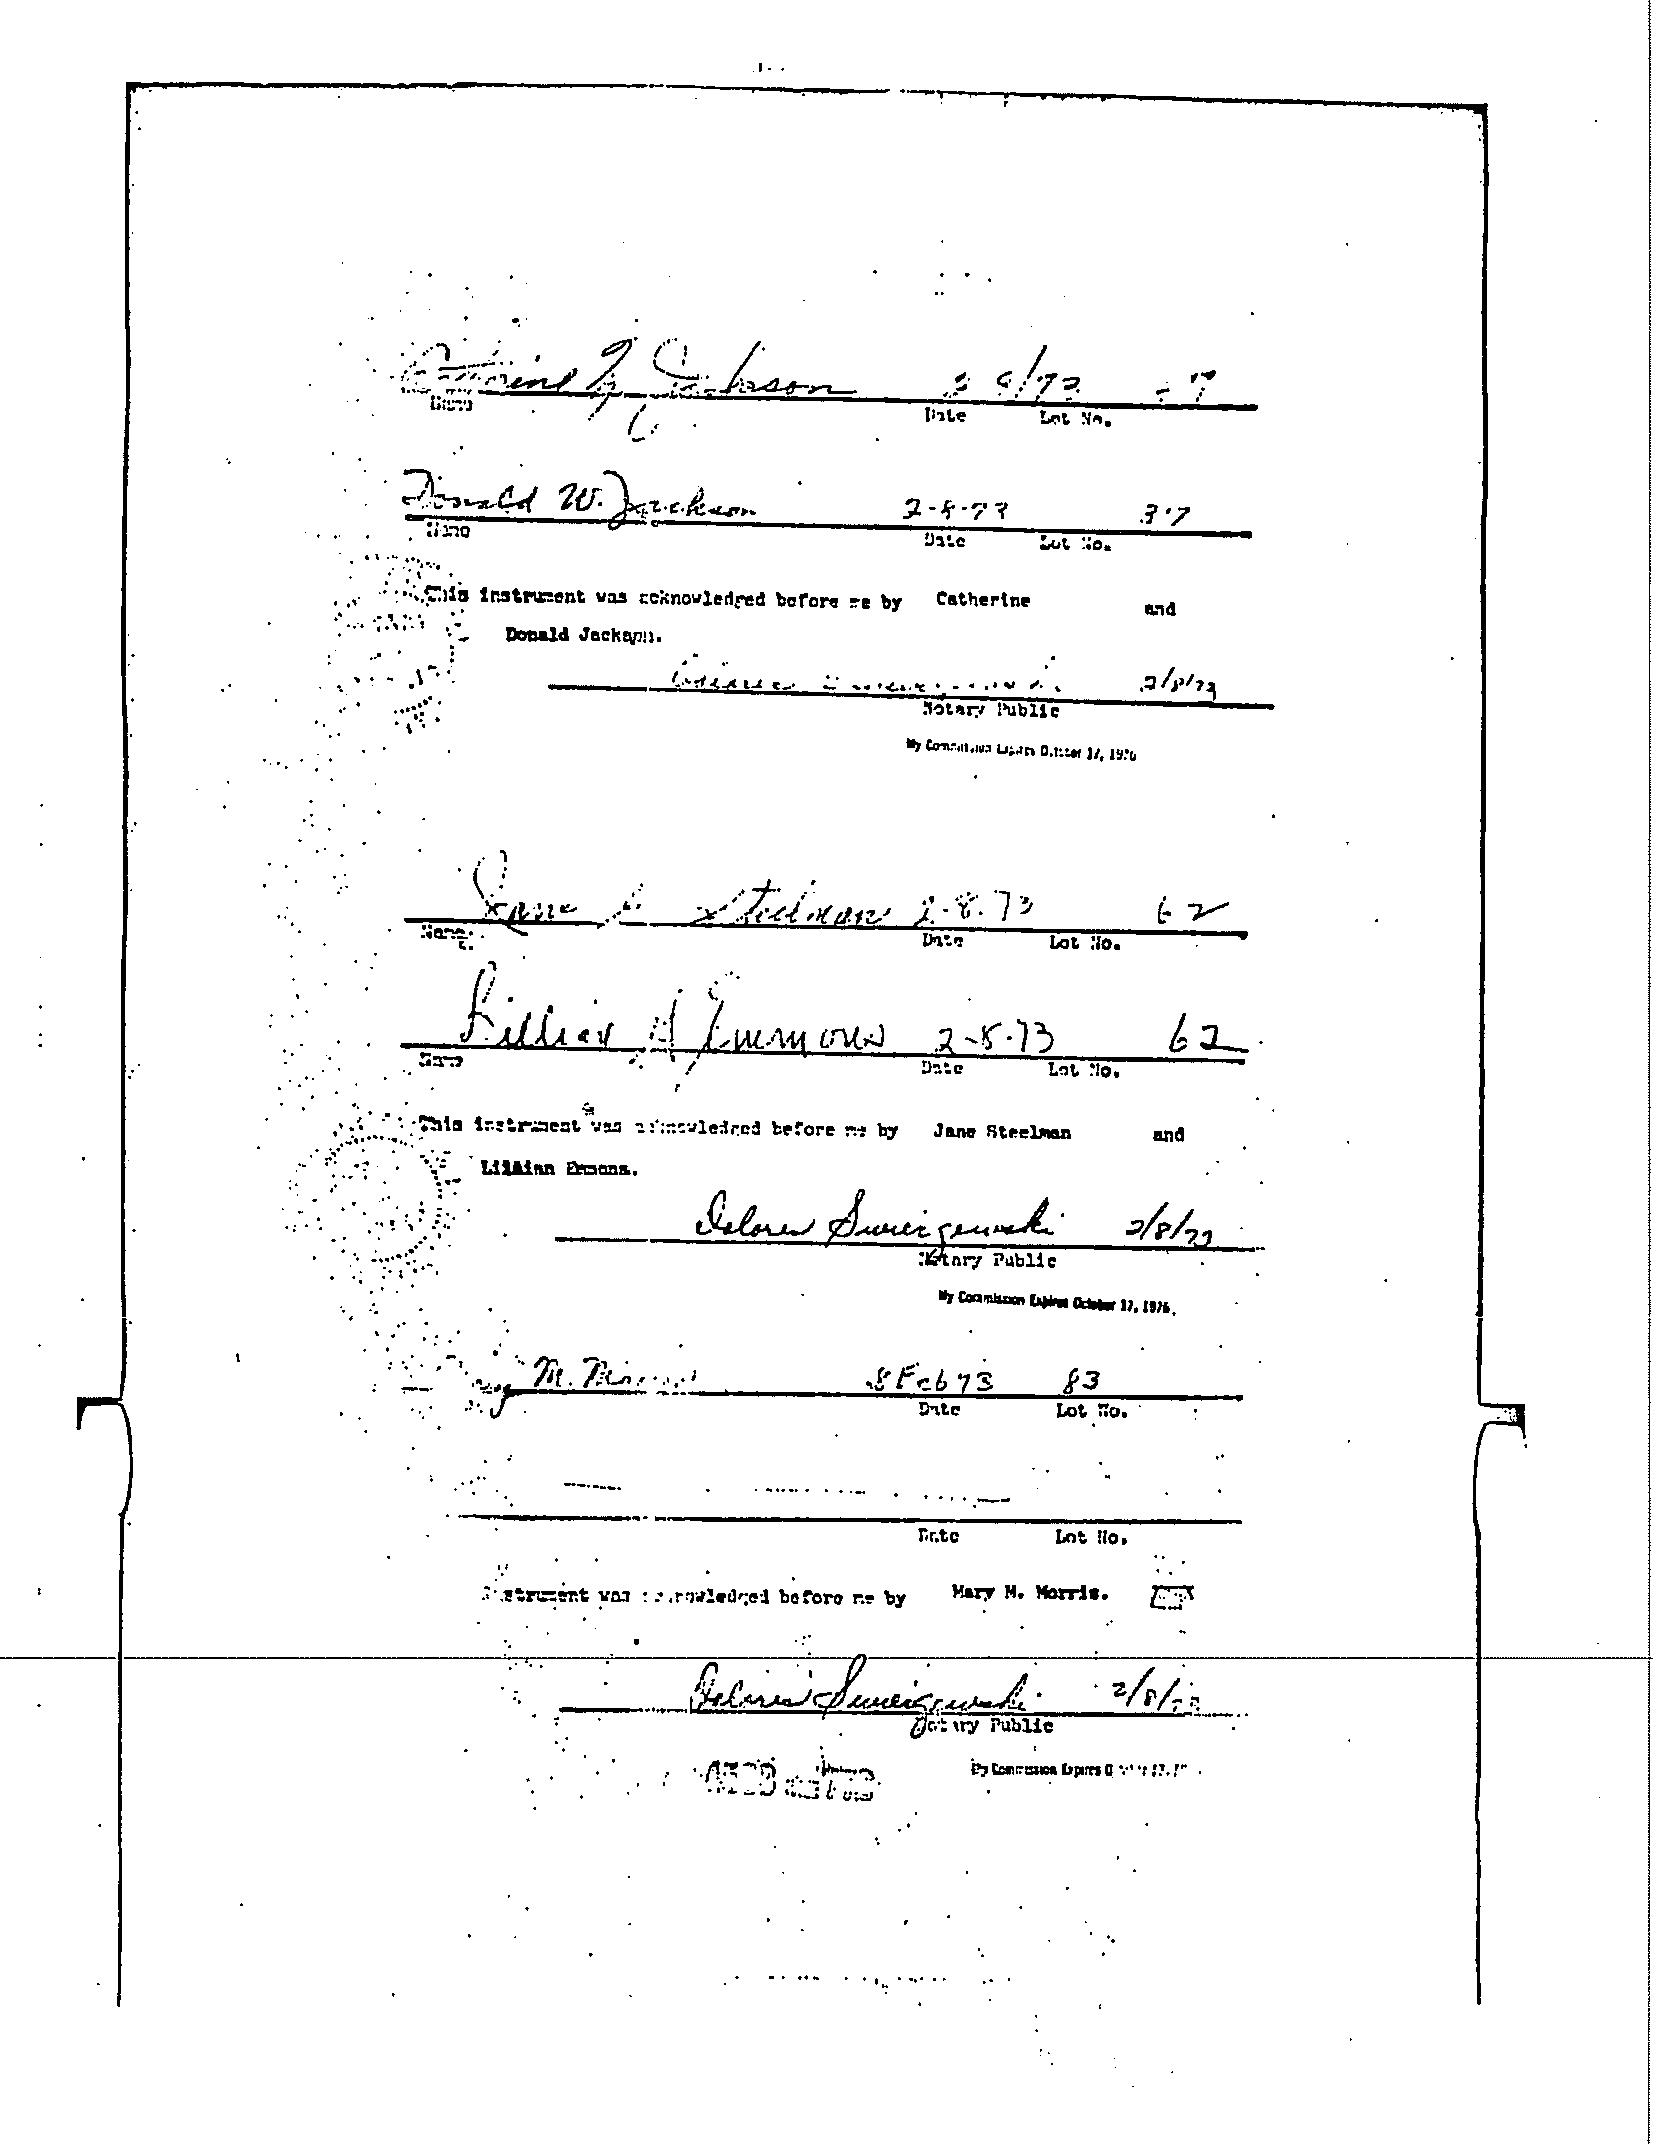 Catherine Jackson
Name Date Lot No.
Donald W. Jackson 2-8-73 37
Name Date Lot No.
This instrument was acknowledged before me by Catherine and
Donald Jackson.
2/8/73
Notary Public
My Commission Expires October 17, 1976
Jane Steelman 2-8-73 62
Name Date Lot No.
Lillian A Emmons 2-8-73 62
Name Date Lot No.
This instrument was acknowledged before me by Jane Steelman and
Lillian Emmons.
Dolores Swierzewski 2/8/73
Notary Public
My Commission Expires October 17, 1976.
M. Morris 8 Feb 73 83
Date Lot No.
Date Lot No.
instrument was acknowledged before me by Mary M. Morris.
Dolores Swierzewski 2/8/73
Notary Public
My Commission Expires